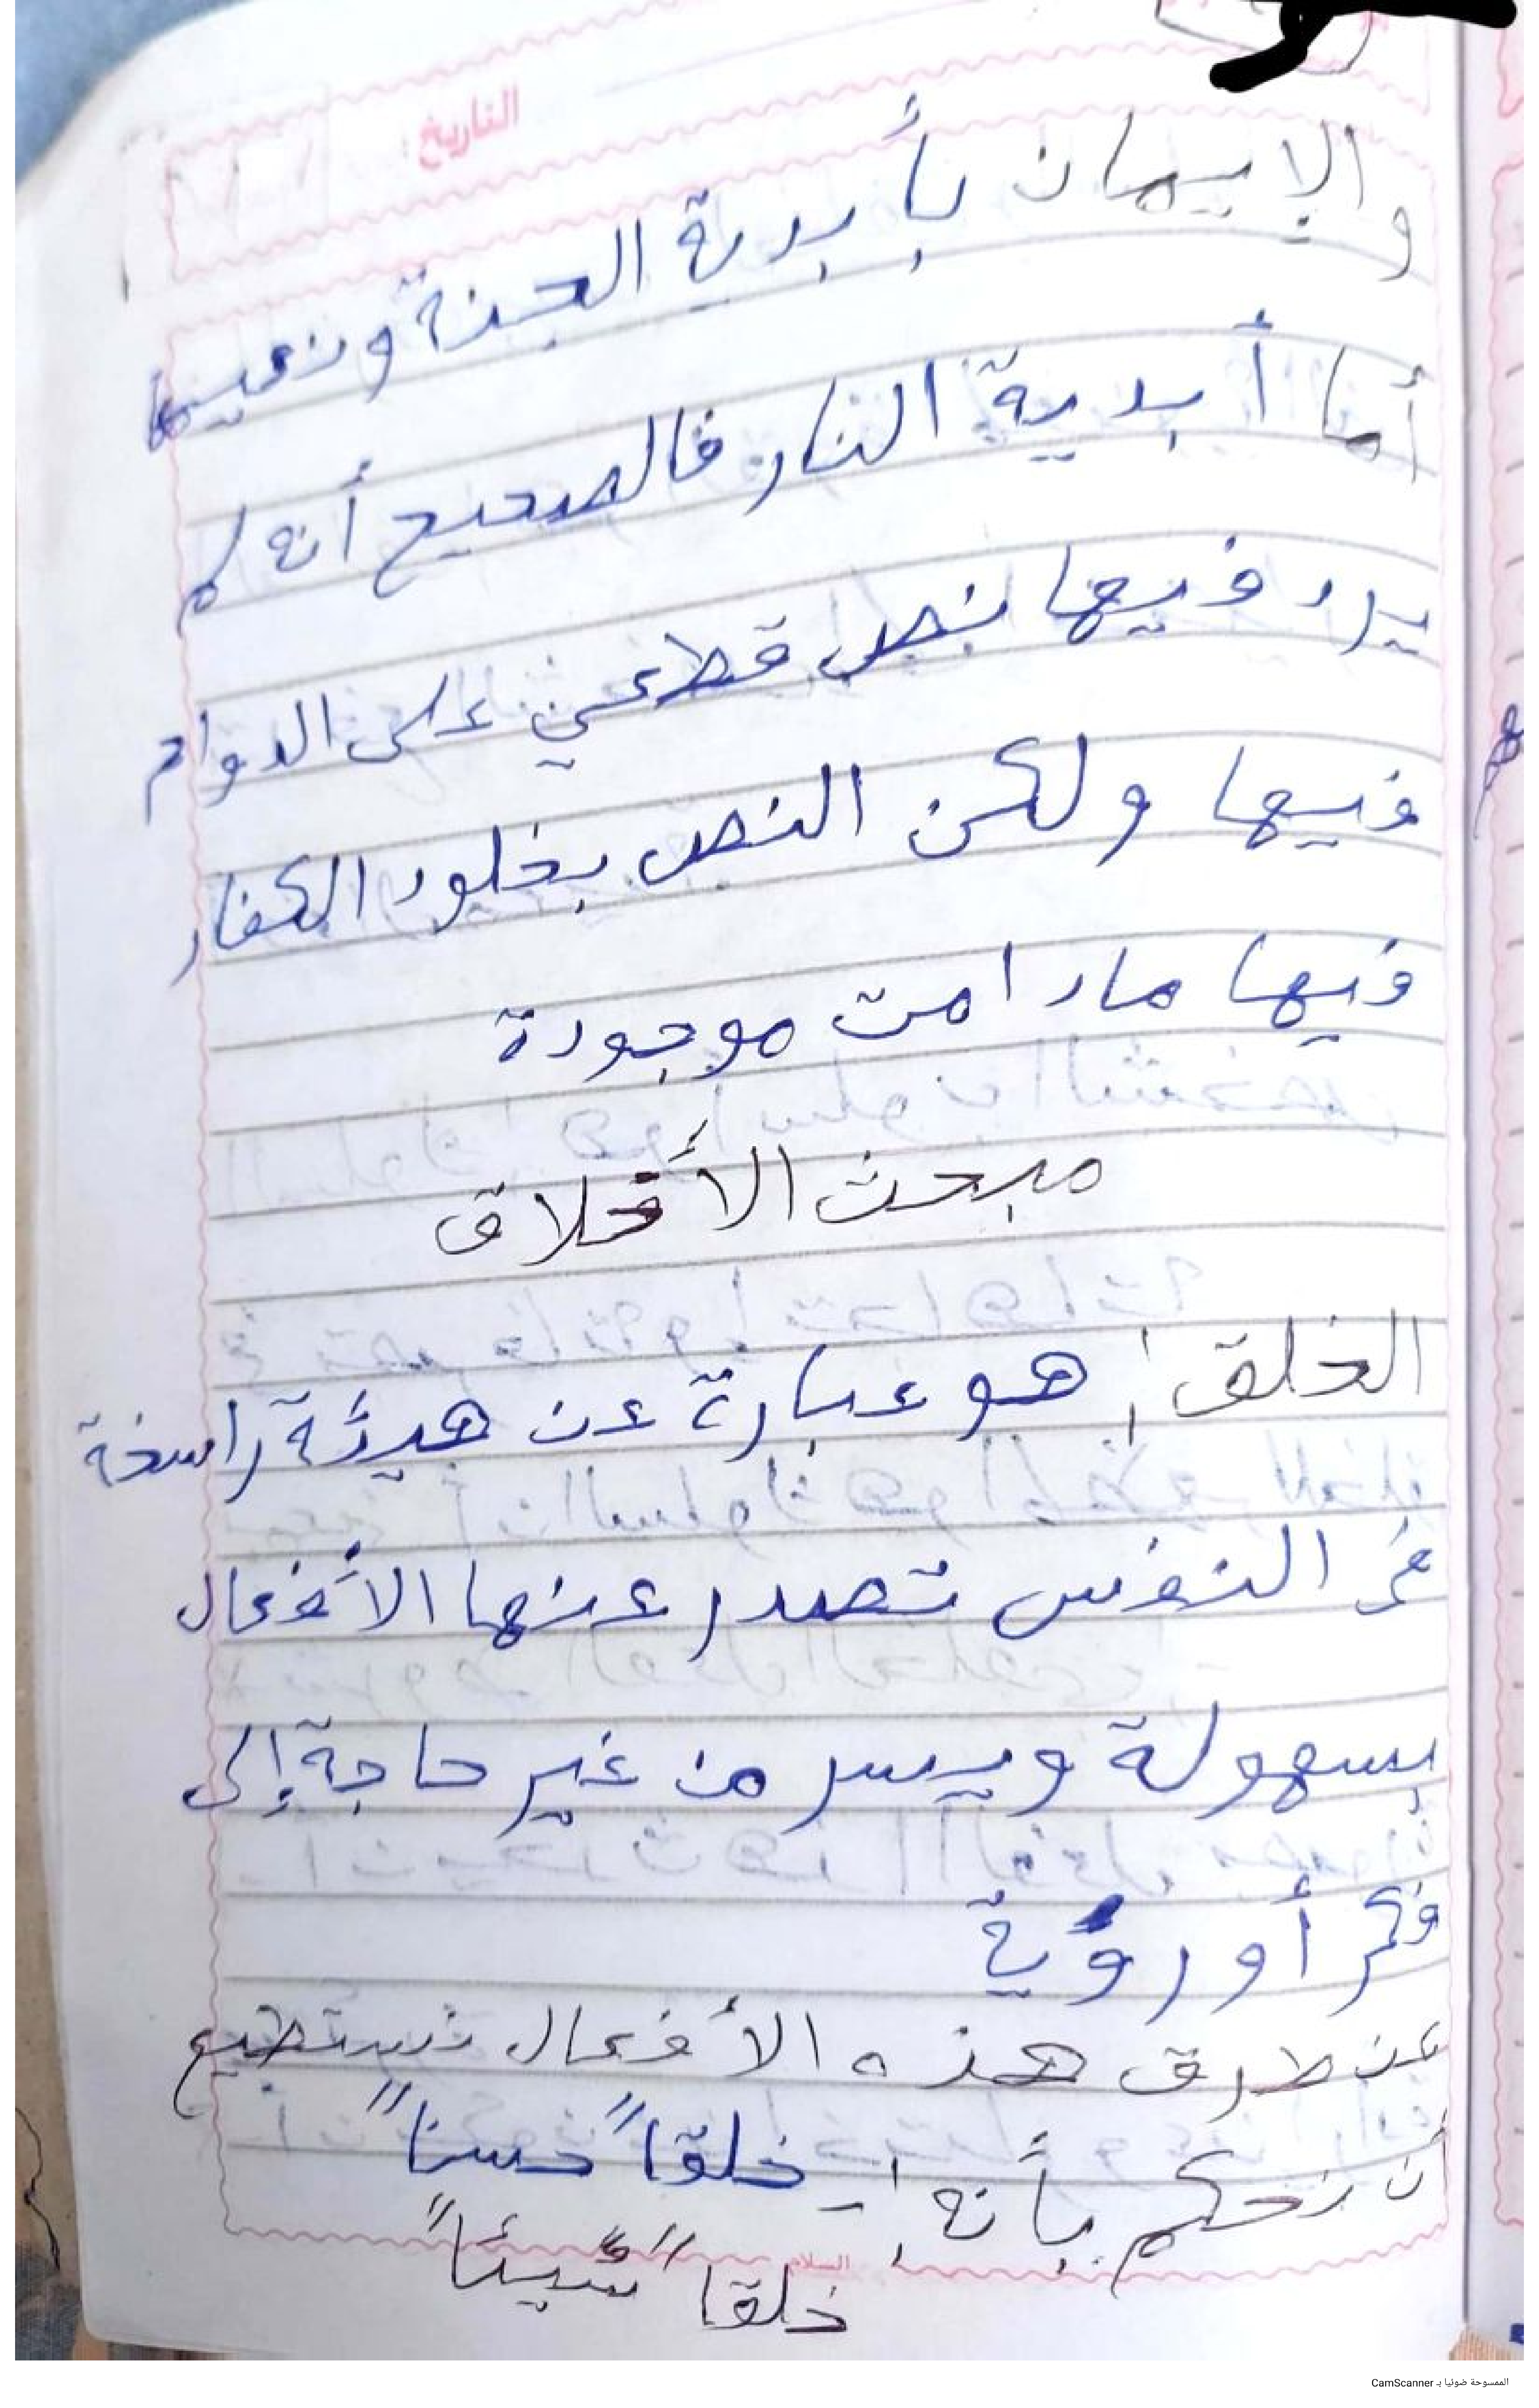 التاريخ:
والإيمان بأبدية الجنة ونعيمها
أما أبدية النار فالصحيح أنه لم
يرد فيها نص قطعي على الدوام
فيها ولكن النص بخلود الكفار
فيها مادامت موجودة
مبحث الأخلاق
الخلق: هو عبارة عن هيئة راسخة
فى النفس تصدر عنها الأفعال
بسهولة ويسر من غير حاجة إلى
فكر أو رؤية
عن طرق هذه الأفعال نستطيع
أن نحكم بأنه :- خلقاً حسناً
خلقاً سيئاً
الممسوحة ضوئيا بـ CamScanner